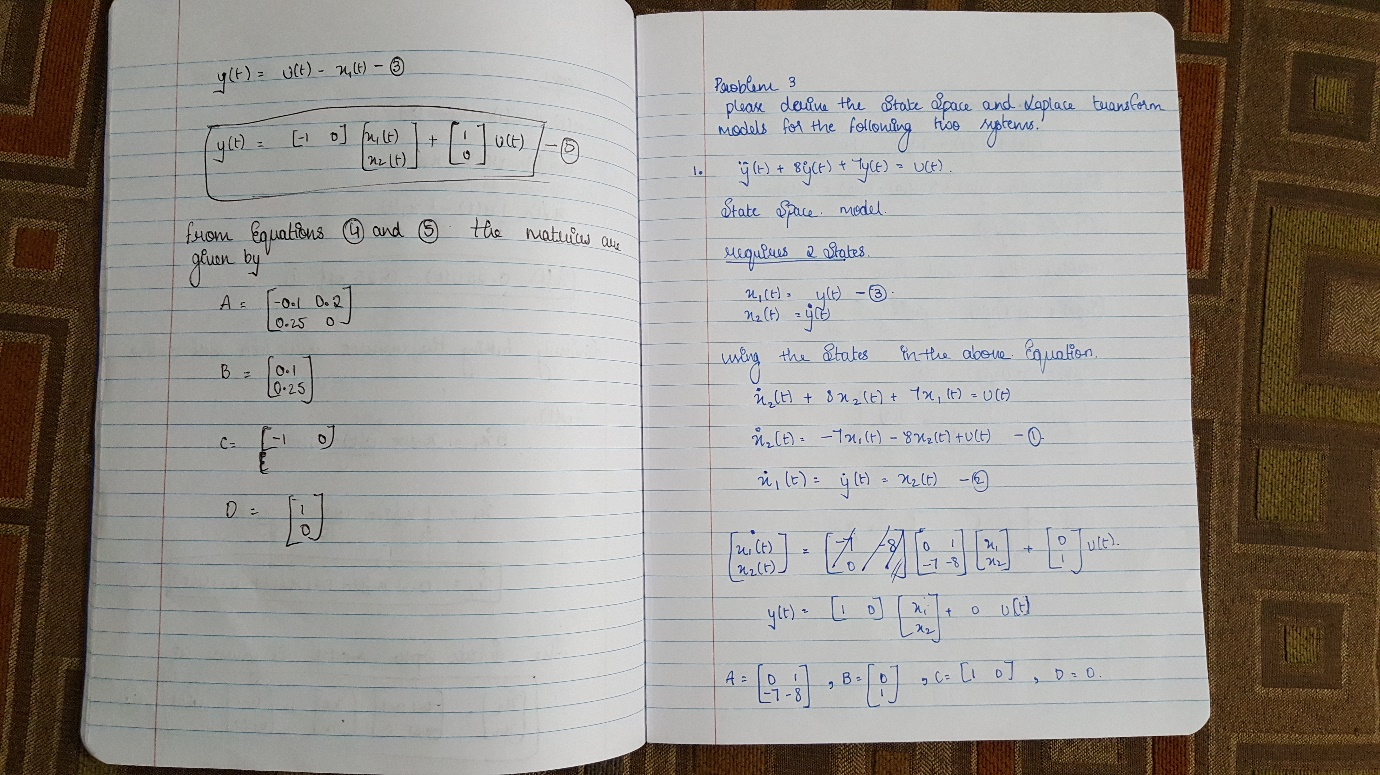 y(t) = U(t) - x₁(t) - ③
y(t) = [-1 0] [x₁(t) x₂(t)] + [1 0] U(t) - ⑤
from Equations ④ and ⑤ the matrices are
given by
A = [-0.1 0.2
0.25 0]
B = [0.1
0.25]
C = [-1 0]
D = [1
0]
Problem 3
please derive the State Space and Laplace transform
models for the following two systems.
1. ÿ(t) + 8ẏ(t) + 7y(t) = U(t).
State Space. model.
requires 2 States.
x₁(t) = y(t) - ③.
x₂(t) = ẏ(t)
using the States in the above Equation.
ẋ₂(t) + 8x₂(t) + 7x₁(t) = U(t)
ẋ₂(t) = -7x₁(t) - 8x₂(t) + U(t) - ①.
ẋ₁(t) = ẏ(t) = x₂(t) - ②
[ẋ₁(t) x₂(t)] = [0 1 -7 -8] [x₁ x₂] + [0 1] U(t).
y(t) = [1 0] [x₁ x₂] + 0 U(t)
A = [0 1 -7 -8] , B = [0 1] , C = [1 0] , D = 0.